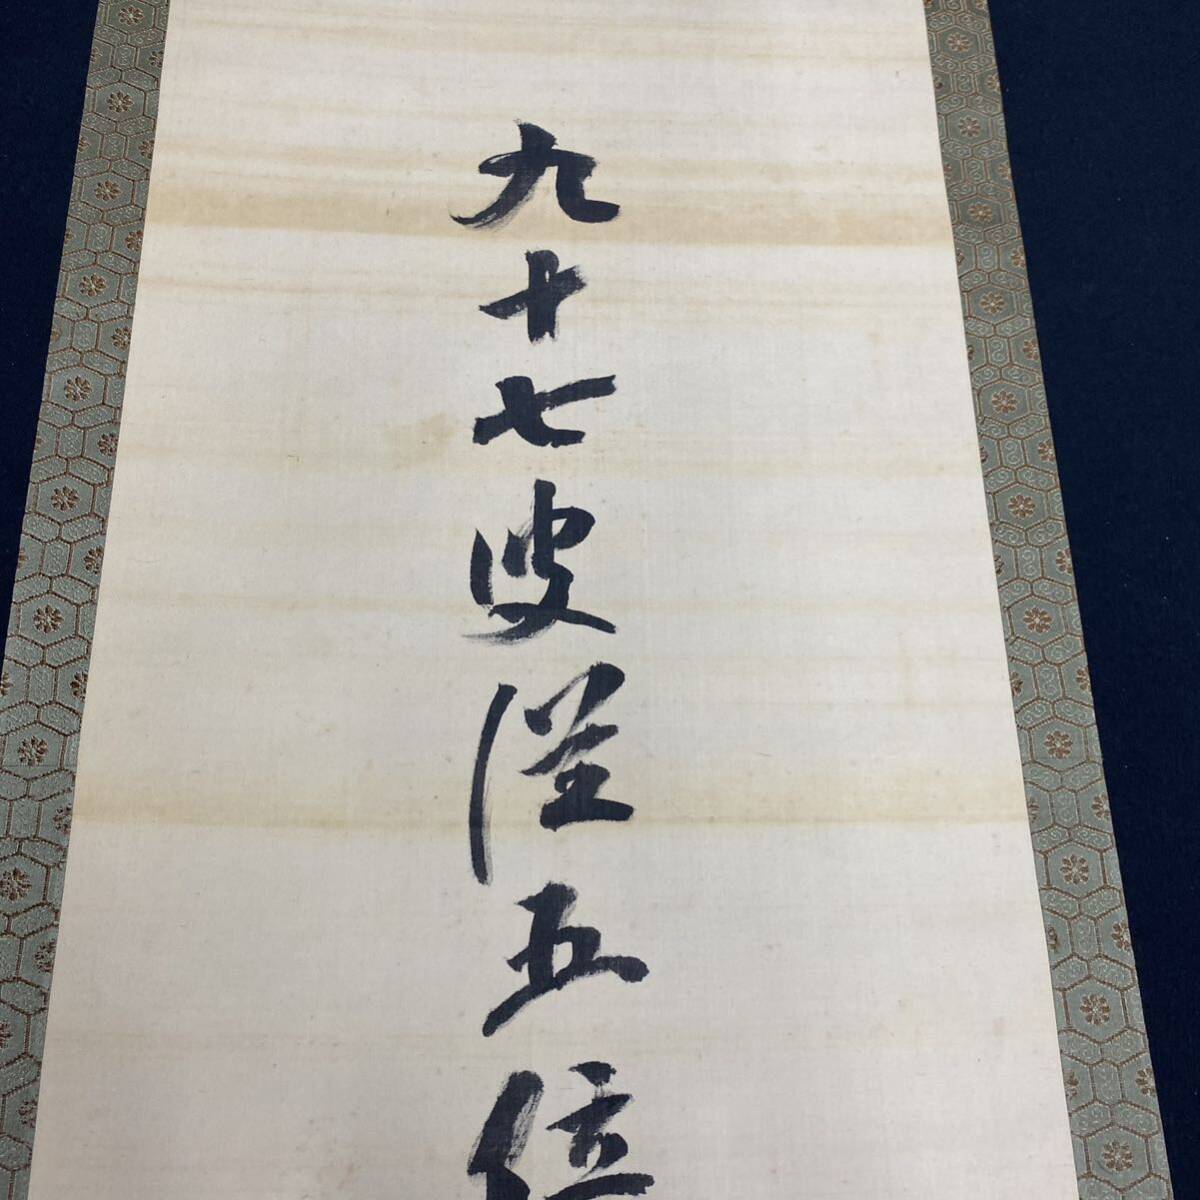 九十七叟従五位